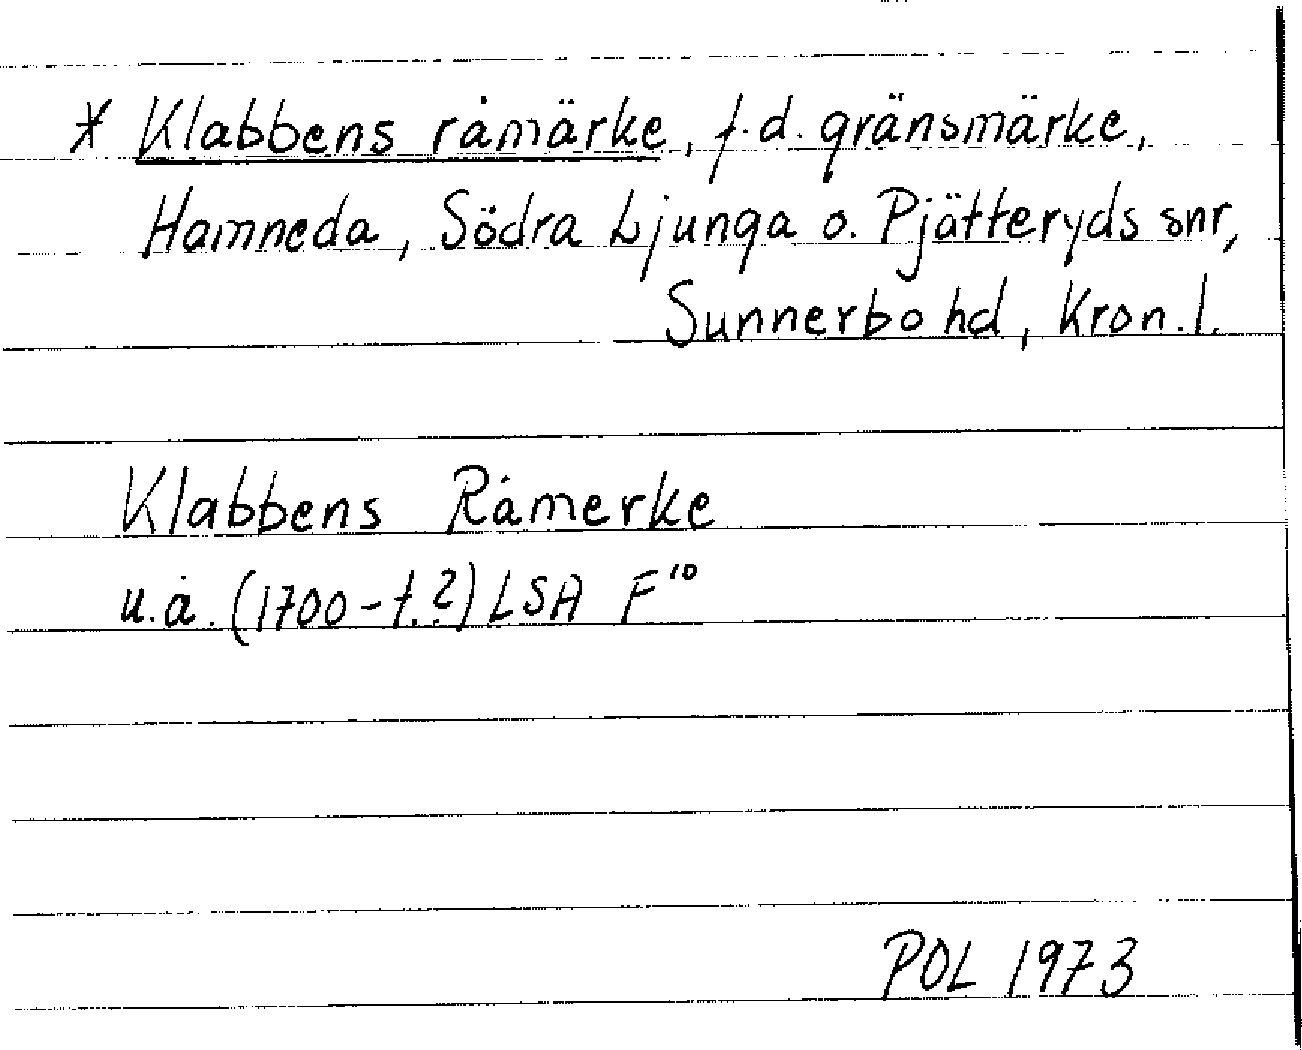 * Klabbens råmärke, f.d. gränsmärke,
Hamneda, Södra Ljunga o. Pjätteryds snr,
Sunnerbo hd, Kron.l.
Klabbens Råmerke
u.å. (1700-t.?) LSA F¹⁰
POL 1973